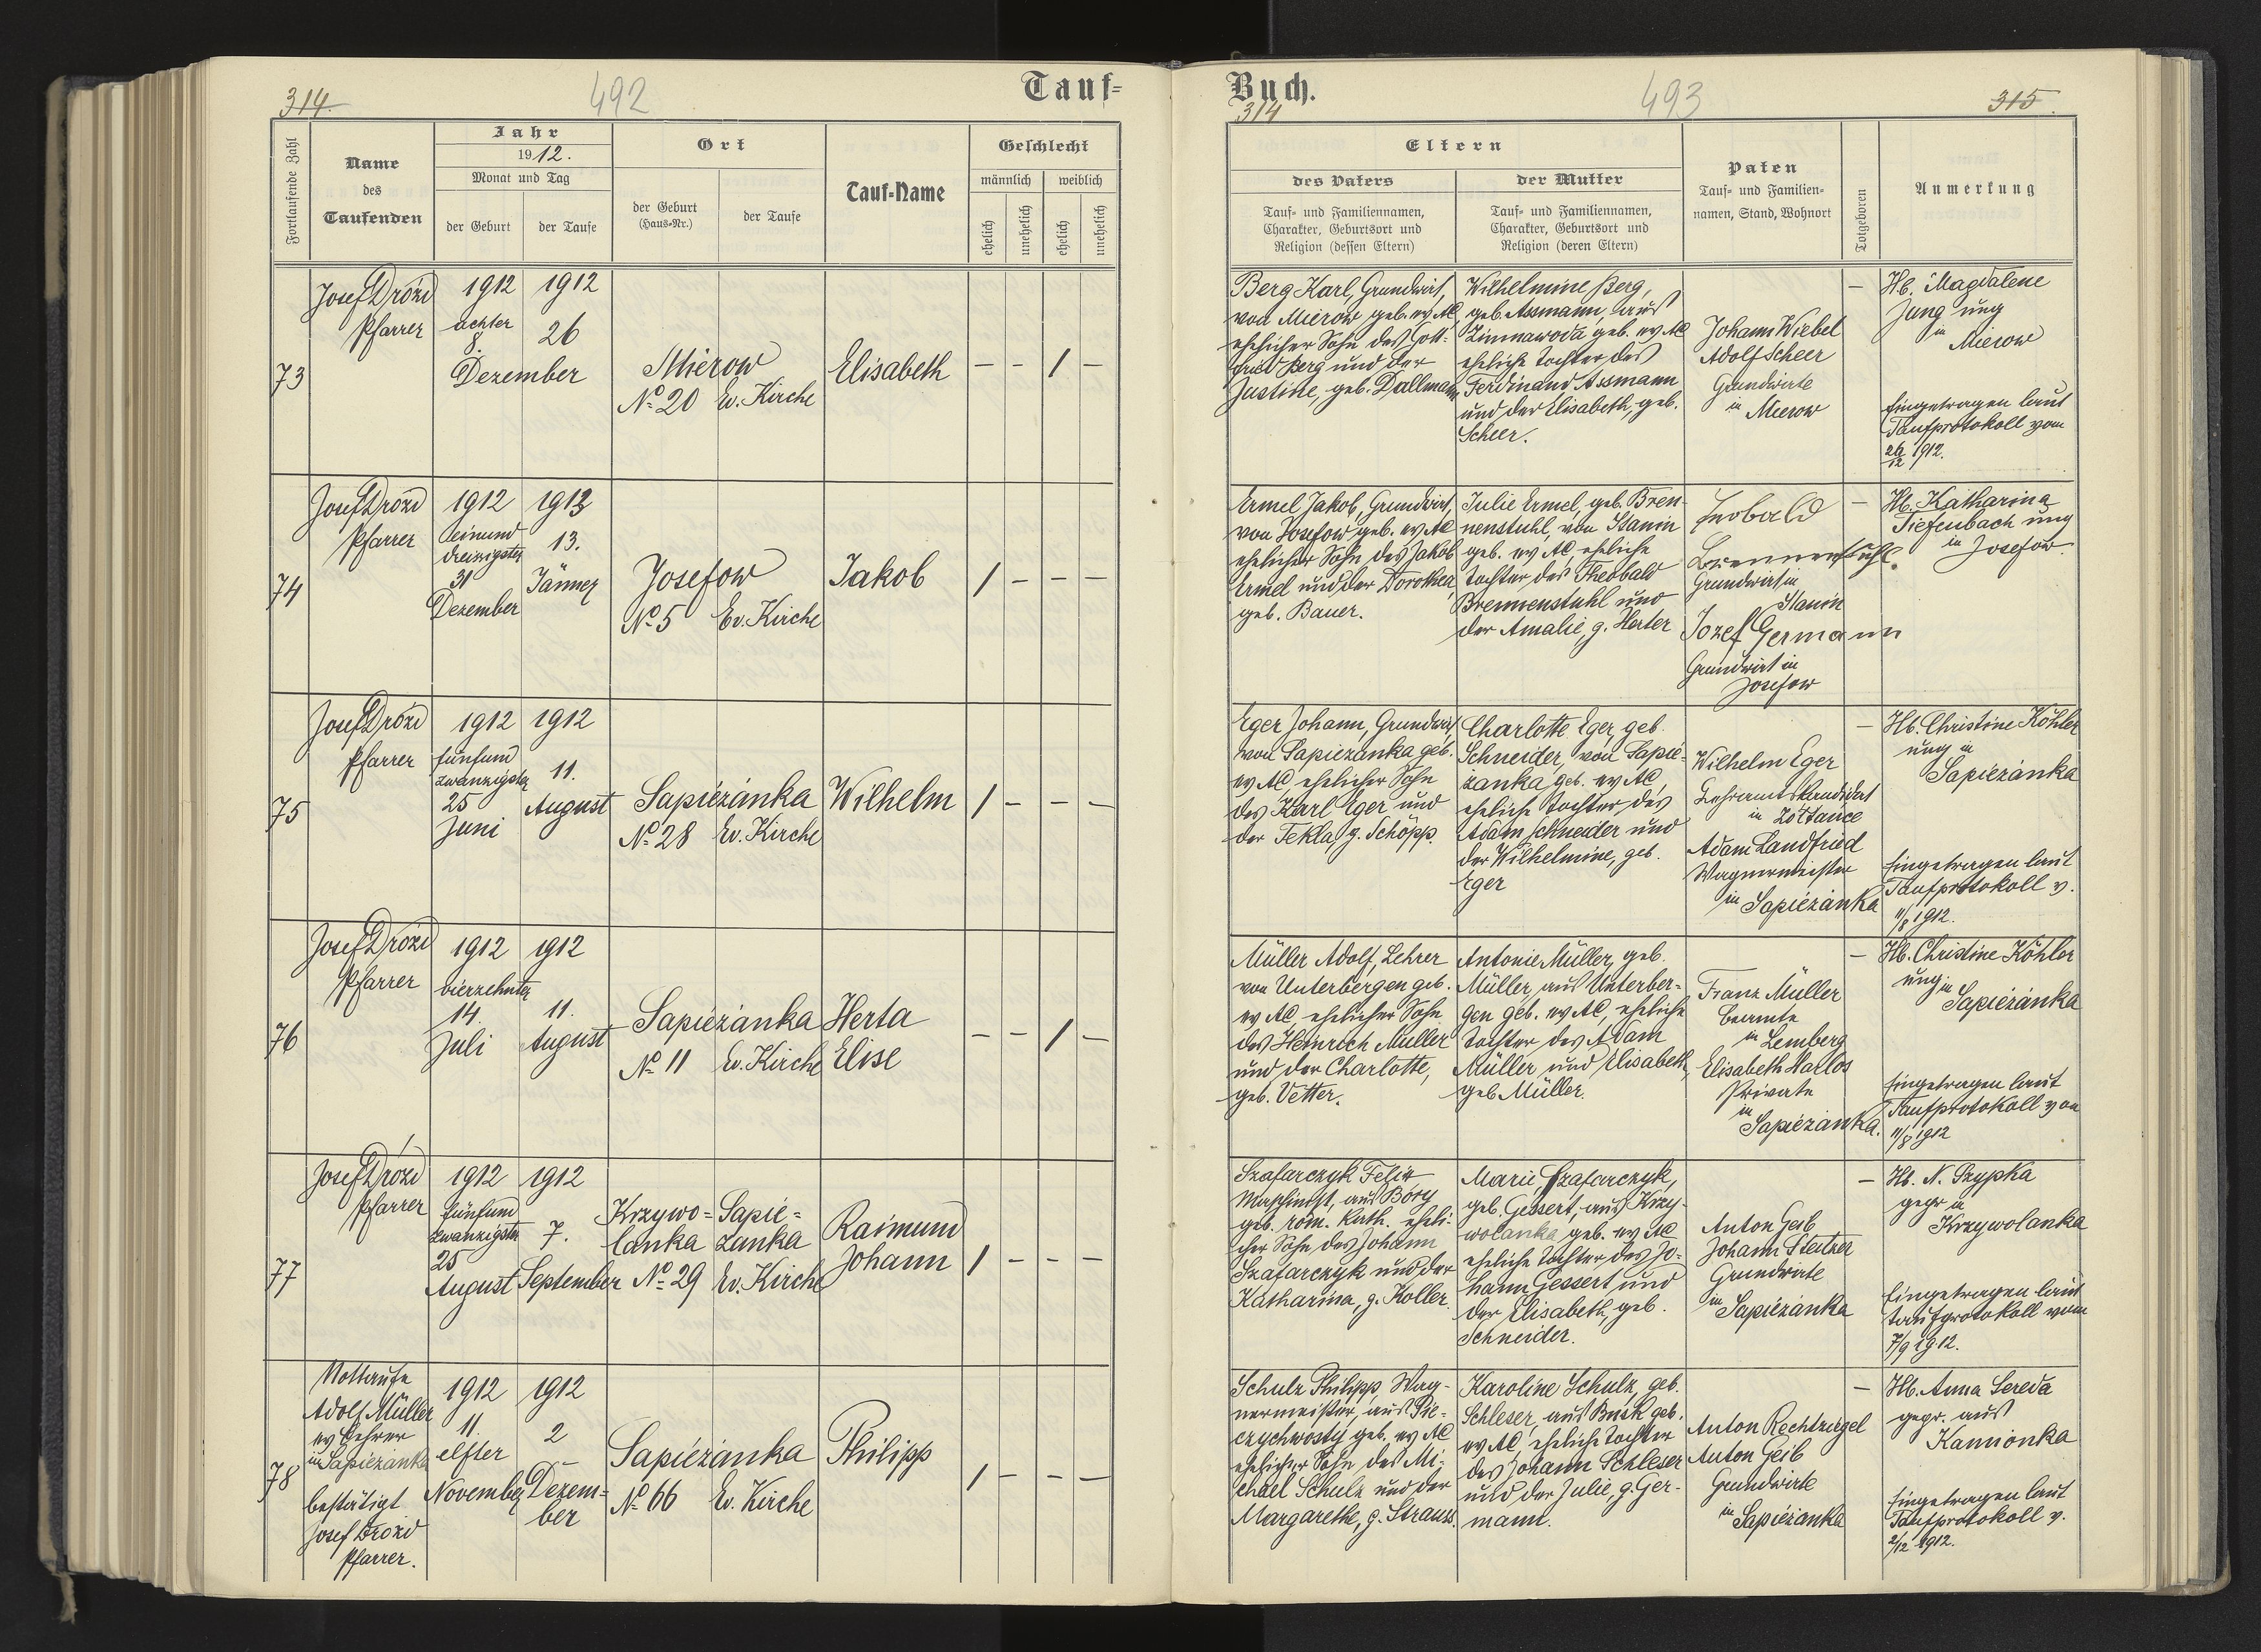 314.
492
Tauf=
Fortlaufende Zahl
Name
des
Taufenden
Jahr
1912.
Monat und Tag
der Geburt
der Taufe
Ort
der Geburt
(Haus=Nr.)
der Taufe
Tauf=Name
Geschlecht
männlich
weiblich
ehelich
unehelich
ehelich
unehelich
73
Josef Drozd
Pfarrer
1912
achter
8.
1912
26
Dezember
Mierow
No 20
Ev. Kirche
Elisabeth
— - 1 —
74
Josef Drozd
Pfarrer
1912
einund
dreizigster
31
Dezember
1913
13.
Jänner
Josefow
No 5
Ev. Kirche
Jakob
1 - — —
75
Josef Drozd
Pfarrer
1912
fünfund
zwanzigster
25
Juni
1912
11.
August
Sapieżanka
No 28
Ev. Kirche
Wilhelm
1 - — —
76
Josef Drozd
Pfarrer
1912
vierzehnter
14.
Juli
1912
11.
August
Sapieżanka
No 11
Ev. Kirche
Herta
Elise
— — 1 —
77
Josef Drozd
Pfarrer
1912
fünfund
zwanzigster
25
August
1912
7.
September
Krzywo=
lanka
No 29
Sapie=
żanka
Ev. Kirche
Raimund
Johann
1 - — —
78
Nottaufe
Adolf Müller
ev Lehrer
in Sapieżanka
bestätigt
Josef Drozd
Pfarrer.
1912
11.
elfter
November
1912
2
Dezem=
ber
Sapieżanka
No 66
Ev. Kirche
Philipp
1 - — —
Buch.
314
493
315.
Eltern
des Vaters
Tauf= und Familiennamen,
Charakter, Geburtsort und
Religion (dessen Eltern)
der Mutter
Tauf= und Familiennamen,
Charakter, Geburtsort und
Religion (deren Eltern)
Paten
Tauf= und Familien=
namen, Stand, Wohnort
Totgeboren
Anmerkung
Berg Karl, Grundwirt,
von Mierow geb. ev AC
ehelicher Sohn des Gott-
fried Berg und der
Justine, geb. Dallmann
Wilhelmine Berg,
geb. Assmann, aus
Zimnawoda geb. ev AC
eheliche Tochter des
Ferdinand Assmann
und der Elisabeth, geb.
Scheer.
Johann Wiebel
Adolf Scheer
Grundwirte
in Mierow
—
Hb. Magdalene
Jung ung
in
Mierow
Eingetragen laut
Taufprotokoll vom
26/12 1912.
Ermel Jakob, Grundwirt,
von Josefow geb. ev AC
ehelicher Sohn des Jakob
Ermel und der Dorothea,
geb. Bauer.
Julie Ermel, geb. Bren-
nenstuhl, von Stanin
geb. ev AC eheliche
Tochter des Theobald
Brennenstuhl und
der Amalie, g. Herter
Brennenstuhl.
Grundwirt in
Stanin
Jozef Germann
Grundwirt in
Josefow
—
Hb. Katharina
Tiefenbach ung
in Josefow.
Eger Johann, Grundwirt
von Sapieżanka geb.
ev AC, ehelicher Sohn
des Karl Eger und
der Tekla, g. Schöpp.
Charlotte Eger, geb.
Schneider, von Sapie-
żanka geb. ev AC
eheliche Tochter des
Adam Schneider und
der Wilhelmine, geb.
Eger
Wilhelm Eger
Lehramtskandidat
in Zółtańce
Adam Landfried
Wagnermeister
in Sapieżanka
—
Hb. Christine Köhler
ung in
Sapieżanka
Eingetragen laut
Taufprotokoll v.
11/8 1912.
Müller Adolf, Lehrer
von Unterbergen geb.
ev AC, ehelicher Sohn
des Heinrich Müller
und der Charlotte,
geb. Vetter.
Antonie Müller, geb.
Müller, aus Unterber-
gen geb. ev AC, eheliche
Tochter des Adam
Müller und Elisabeth,
geb Müller.
Franz Müller
Beamte
in Lemberg
Elisabeth Harlos
Private
in
Sapieżanka.
—
Hb. Christine Köhler
ung. in
Sapieżanka
Eingetragen laut
Taufprotokoll von
11/8 1912
Szafarczyk Felix
Maschinist, aus Bory
geb. röm. Kath. eheli-
cher Sohn des Johann
Szafarczyk und der
Katharina, g. Koller.
Marie Szafarczyk,
geb. Gessert, aus Krzy-
wolanka geb. ev AC
eheliche Tochter des Jo-
hann Gessert und
der Elisabeth, geb.
Schneider.
Anton Geib
Johann Steitzer
Grundwirte
in Sapieżanka
—
Hb. N. Przypka
gepr in
Krzywolanka
Eingetragen laut
Taufprotokoll vom
7/9 1912.
Schulz Philipp, Wag-
nermeister, aus Pie-
czychwosty geb. ev AC
ehelicher Sohn des Mi-
chael Schulz und der
Margarethe, g. Strauss.
Karoline Schulz, geb.
Schleser, aus Busk geb.
ev AC, eheliche Tochter
des Johann Schleser
und der Julie, g. Ger-
mann.
Anton Rechtziegel
Anton Geib
Grundwirte
in Sapieżanka
—
Hb. Anna Sereda
gepr. aus
Kamionka
Eingetragen laut
Taufprotokoll v.
2/12 1912.